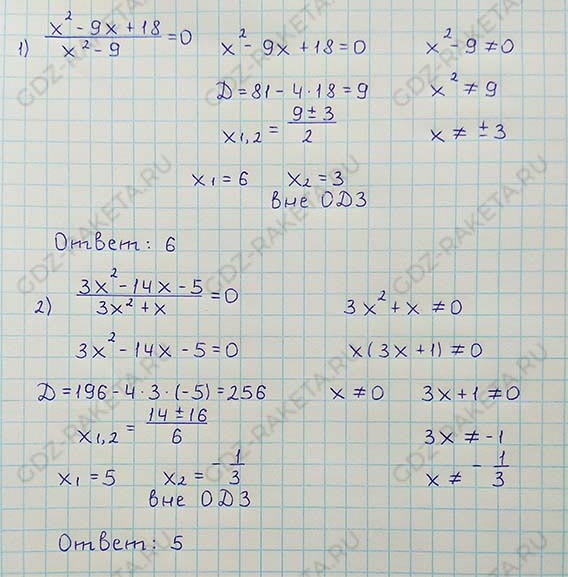 1) (x² - 9x + 18)/(x² - 9) = 0    x² - 9x + 18 = 0    x² - 9 ≠ 0
D = 81 - 4 · 18 = 9    x² ≠ 9
x₁,₂ = (9 ± 3)/2    x ≠ ± 3
x₁ = 6    x₂ = 3
вне ОДЗ
Ответ: 6
2) (3x² - 14x - 5)/(3x² + x) = 0    3x² + x ≠ 0
3x² - 14x - 5 = 0    x(3x + 1) ≠ 0
D = 196 - 4 · 3 · (-5) = 256    x ≠ 0    3x + 1 ≠ 0
x₁,₂ = (14 ± 16)/6    3x ≠ -1
x₁ = 5    x₂ = -1/3    x ≠ -1/3
вне ОДЗ
Ответ: 5
GDZ-RAKETA.RU